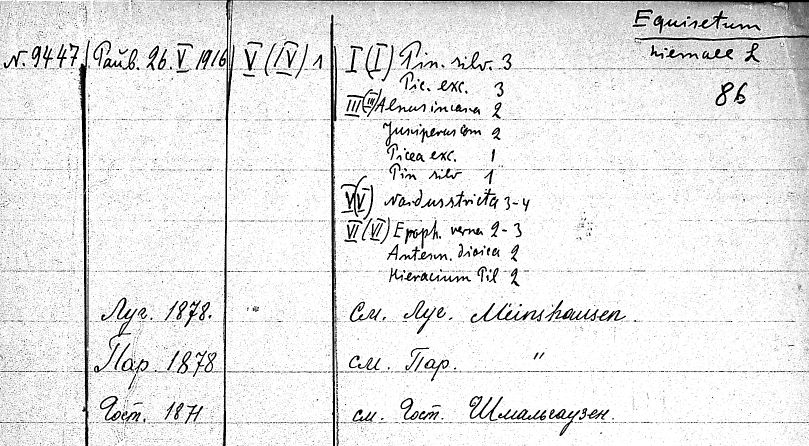 Equisetum
hiemale L
86
N. 9447 Грив. 26. V 1916 V (IV) 1 I (I) Pin. silv. 3
Pic. exc. 3
III (III) Alnus incana 2
Juniperus com 2
Picea exc. 1
Pin silv 1
V (V) Nardus stricta 3-4
VI (VI) Eroph. verna 2-3
Antenn. dioica 2
Hieracium Pil 2
Луг. 1878. " см. Луг. Meinshausen.
Пар. 1878 см. Пар. "
Гост. 1871 см. Гост. Шмальгаузен.